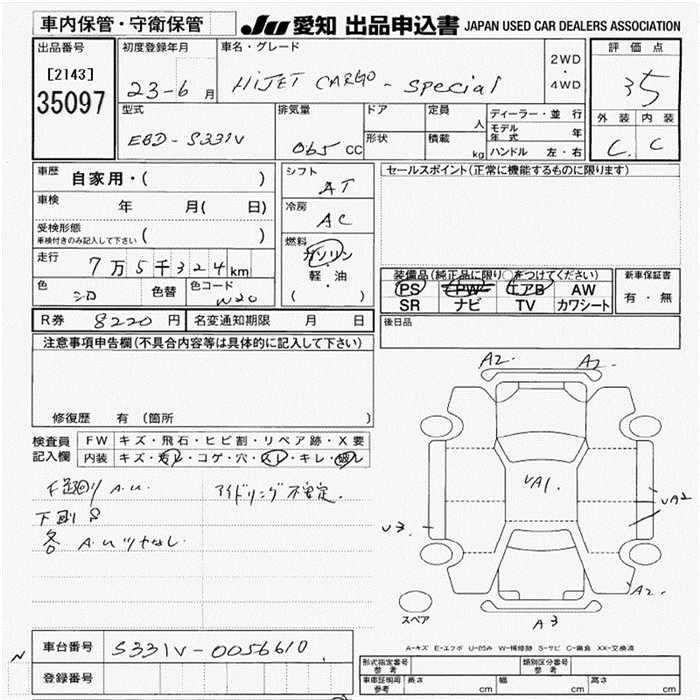 車内保管・守衛保管
JU 愛知 出品申込書 JAPAN USED CAR DEALERS ASSOCIATION
出品番号
[2143]
35097
初度登録年月
23-6 月
車名・グレード
HIJET CARGO - Special
2WD
・
4WD
評価点
35
外装 内装
C C
型式
EBD-S331V
排気量
065 CC
ドア
形状
定員
人
積載
kg
ディーラー・並行
モデル年式 年
ハンドル 左・右
車歴
自家用・( )
車検
年 月( 日)
受検形態
車検付きのみ記入して下さい ( )
走行
7万5千324km
色
シロ
色替
色コード
W20
シフト
AT
冷房
AC
燃料
ガソリン
・
軽・油
( )
セールスポイント(正常に機能するものに限ります)
装備品(純正品に限り○をつけてください)
PS PW エアB AW
SR ナビ TV カワシート
新車保証書
有・無
後日品
R券 8220 円
名変通知期限 月 日
注意事項申告欄(不具合内容等は具体的に記入して下さい)
修復歴 有 (箇所 )
検査員
記入欄
FW キズ・飛石・ヒビ割・リペア跡・X要
内装 キズ・ヨゴレ・コゲ・穴・スレ・キレ・破レ
下廻り A.U
アイドリング不安定.
下廻りS
各 A.Uツヤなし
A2. A2.
UA1.
UA2
U3.
A2.
A3
スペア
A-キズ E-エクボ U-凹み W-補修跡 S-サビ C-腐食 XX-交換済
車台番号 S331V-0056610
登録番号
形式指定番号
参考
類別区分番号
参考
車庫証明用
参考
長さ cm 幅 cm 高さ cm